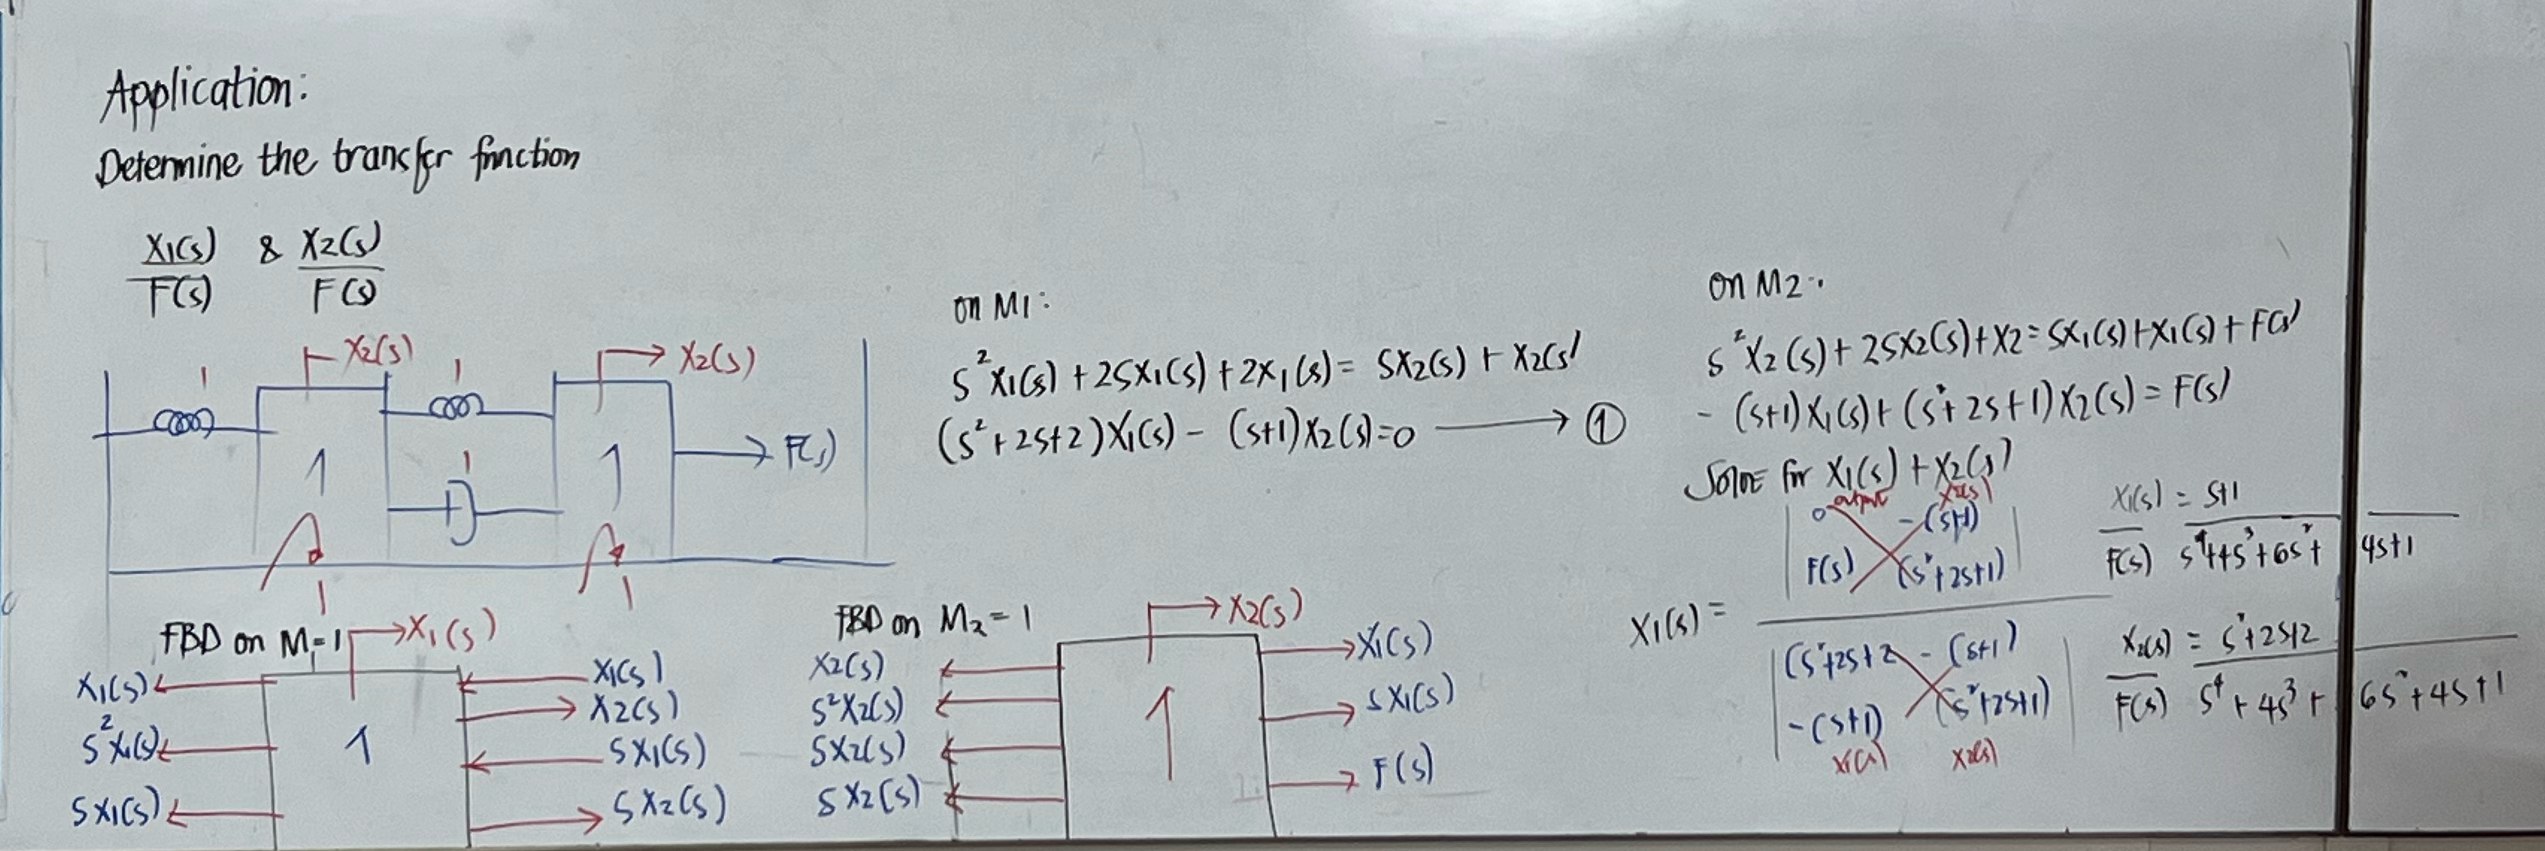 Application:
Determine the transfer function
X1(s) & X2(s)
F(s) F(s)
1 X2(s) 1 X2(s)
1 1 F(s)
1
1 1
FBD on M1=1 X1(s)
X1(s) X1(s)
s²X1(s) X2(s)
1 SX1(s)
SX1(s) SX2(s)
FBD on M2=1 X2(s)
X2(s) X1(s)
S²X2(s) SX1(s)
1
SX2(s) F(s)
SX2(s)
on M1:
S²X1(s) + 2SX1(s) + 2X1(s) = SX2(s) + X2(s)
(S²+2S+2)X1(s) - (S+1)X2(s)=0 → ①
on M2:
S²X2(s) + 2SX2(s)+X2=SX1(s)+X1(s)+F(s)
- (S+1)X1(s)+(S²+2S+1)X2(s)=F(s)
Solve for X1(s) + X2(s)
output X2(s)
0 -(S+1)
F(s) (S²+2S+1)
X1(s) =
(S²+2S+2 - (S+1)
-(S+1) (S²+2S+1)
X1(s) X2(s)
X1(s) = S+1
F(s) S⁴+4S³+6S²+4S+1
X2(s) = S²+2S+2
F(s) S⁴+4S³+6S²+4S+1